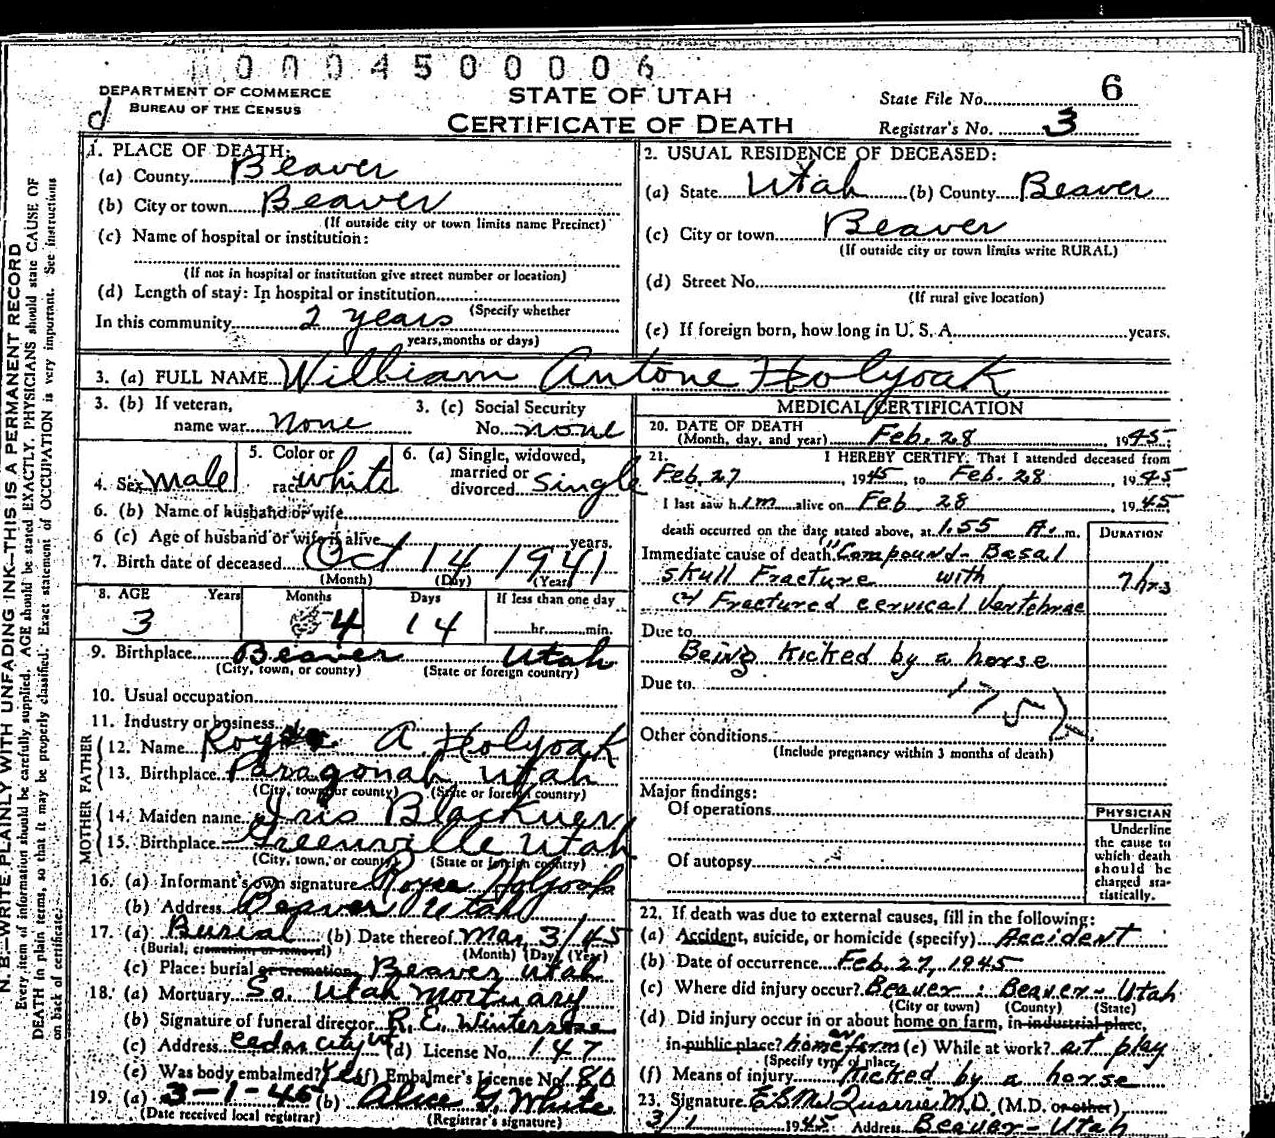 0004500006
DEPARTMENT OF COMMERCE
BUREAU OF THE CENSUS
d
STATE OF UTAH
CERTIFICATE OF DEATH
State File No. 6
Registrar's No. 3
1. PLACE OF DEATH:
(a) County Beaver
(b) City or town Beaver
(If outside city or town limits name Precinct)
(c) Name of hospital or institution:
(If not in hospital or institution give street number or location)
(d) Length of stay: In hospital or institution
(Specify whether
In this community 2 years
years, months or days)
2. USUAL RESIDENCE OF DECEASED:
(a) State Utah (b) County Beaver
(c) City or town Beaver
(If outside city or town limits write RURAL)
(d) Street No.
(If rural give location)
(e) If foreign born, how long in U. S. A. years.
3. (a) FULL NAME William Antone Holyoak
3. (b) If veteran, name war none
3. (c) Social Security No. none
4. Sex male
5. Color or race white
6. (a) Single, widowed, married or divorced single
6. (b) Name of husband or wife
6 (c) Age of husband or wife if alive years.
7. Birth date of deceased Oct 14 1941
(Month) (Day) (Year)
8. AGE Years Months Days If less than one day
3 4 14 hr. min.
9. Birthplace Beaver Utah
(City, town, or county) (State or foreign country)
10. Usual occupation
11. Industry or business
FATHER
12. Name A. Holyoak
13. Birthplace Paragonah Utah
(City, town, or county) (State or foreign country)
MOTHER
14. Maiden name Iris Blackner
15. Birthplace Greenville Utah
(City, town, or county) (State or foreign country)
16. (a) Informant's own signature Royce Holyoak
(b) Address Beaver Utah
17. (a) Burial (b) Date thereof Mar 3/45
(Burial, cremation or removal) (Month) (Day) (Year)
(c) Place: burial or cremation Beaver Utah
18. (a) Mortuary So. Utah Mortuary
(b) Signature of funeral director R. E. Winterrose
(c) Address Cedar City Ut (d) License No. 147
(e) Was body embalmed? Yes (f) Embalmer's License No. 180
19. (a) 3-1-45 (b) Alice G. White
(Date received local registrar) (Registrar's signature)
MEDICAL CERTIFICATION
20. DATE OF DEATH
(Month, day, and year) Feb. 28, 1945.
21. I HEREBY CERTIFY, That I attended deceased from
Feb. 27 1945, to Feb. 28, 1945
I last saw him alive on Feb 28, 1945
death occurred on the date stated above, at 1:55 A. m.
DURATION
Immediate cause of death Compound - Basal
skull Fracture with 7 hrs
Fractured cervical vertebrae
Due to
Being kicked by a horse
Due to
175
Other conditions
(Include pregnancy within 3 months of death)
Major findings:
Of operations
Of autopsy
PHYSICIAN
Underline
the cause to
which death
should be
charged sta-
tistically.
22. If death was due to external causes, fill in the following:
(a) Accident, suicide, or homicide (specify) Accident
(b) Date of occurrence Feb. 27, 1945
(c) Where did injury occur? Beaver : Beaver - Utah
(City or town) (County) (State)
(d) Did injury occur in or about home on farm, in industrial place,
in public place? home on farm (e) While at work? at play
(Specify type of place)
(f) Means of injury Kicked by a horse
23. Signature M.D. (M.D. or other)
3/1 1945 Address Beaver - Utah
N. B.—WRITE PLAINLY WITH UNFADING INK—THIS IS A PERMANENT RECORD
Every item of information should be carefully supplied. AGE should be stated EXACTLY. PHYSICIANS should state CAUSE OF
DEATH in plain terms, so that it may be properly classified. Exact statement of OCCUPATION is very important. See instructions
on back of certificate.